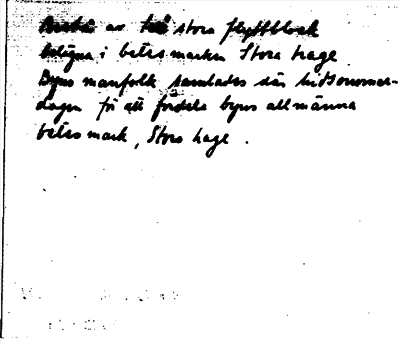 Består av två stora flyttblock
belägna i betesmarken Stora hage
Byns manfolk samlades där midsommar-
dagen för att fördela byns allmänna
betesmark, Stora hage.